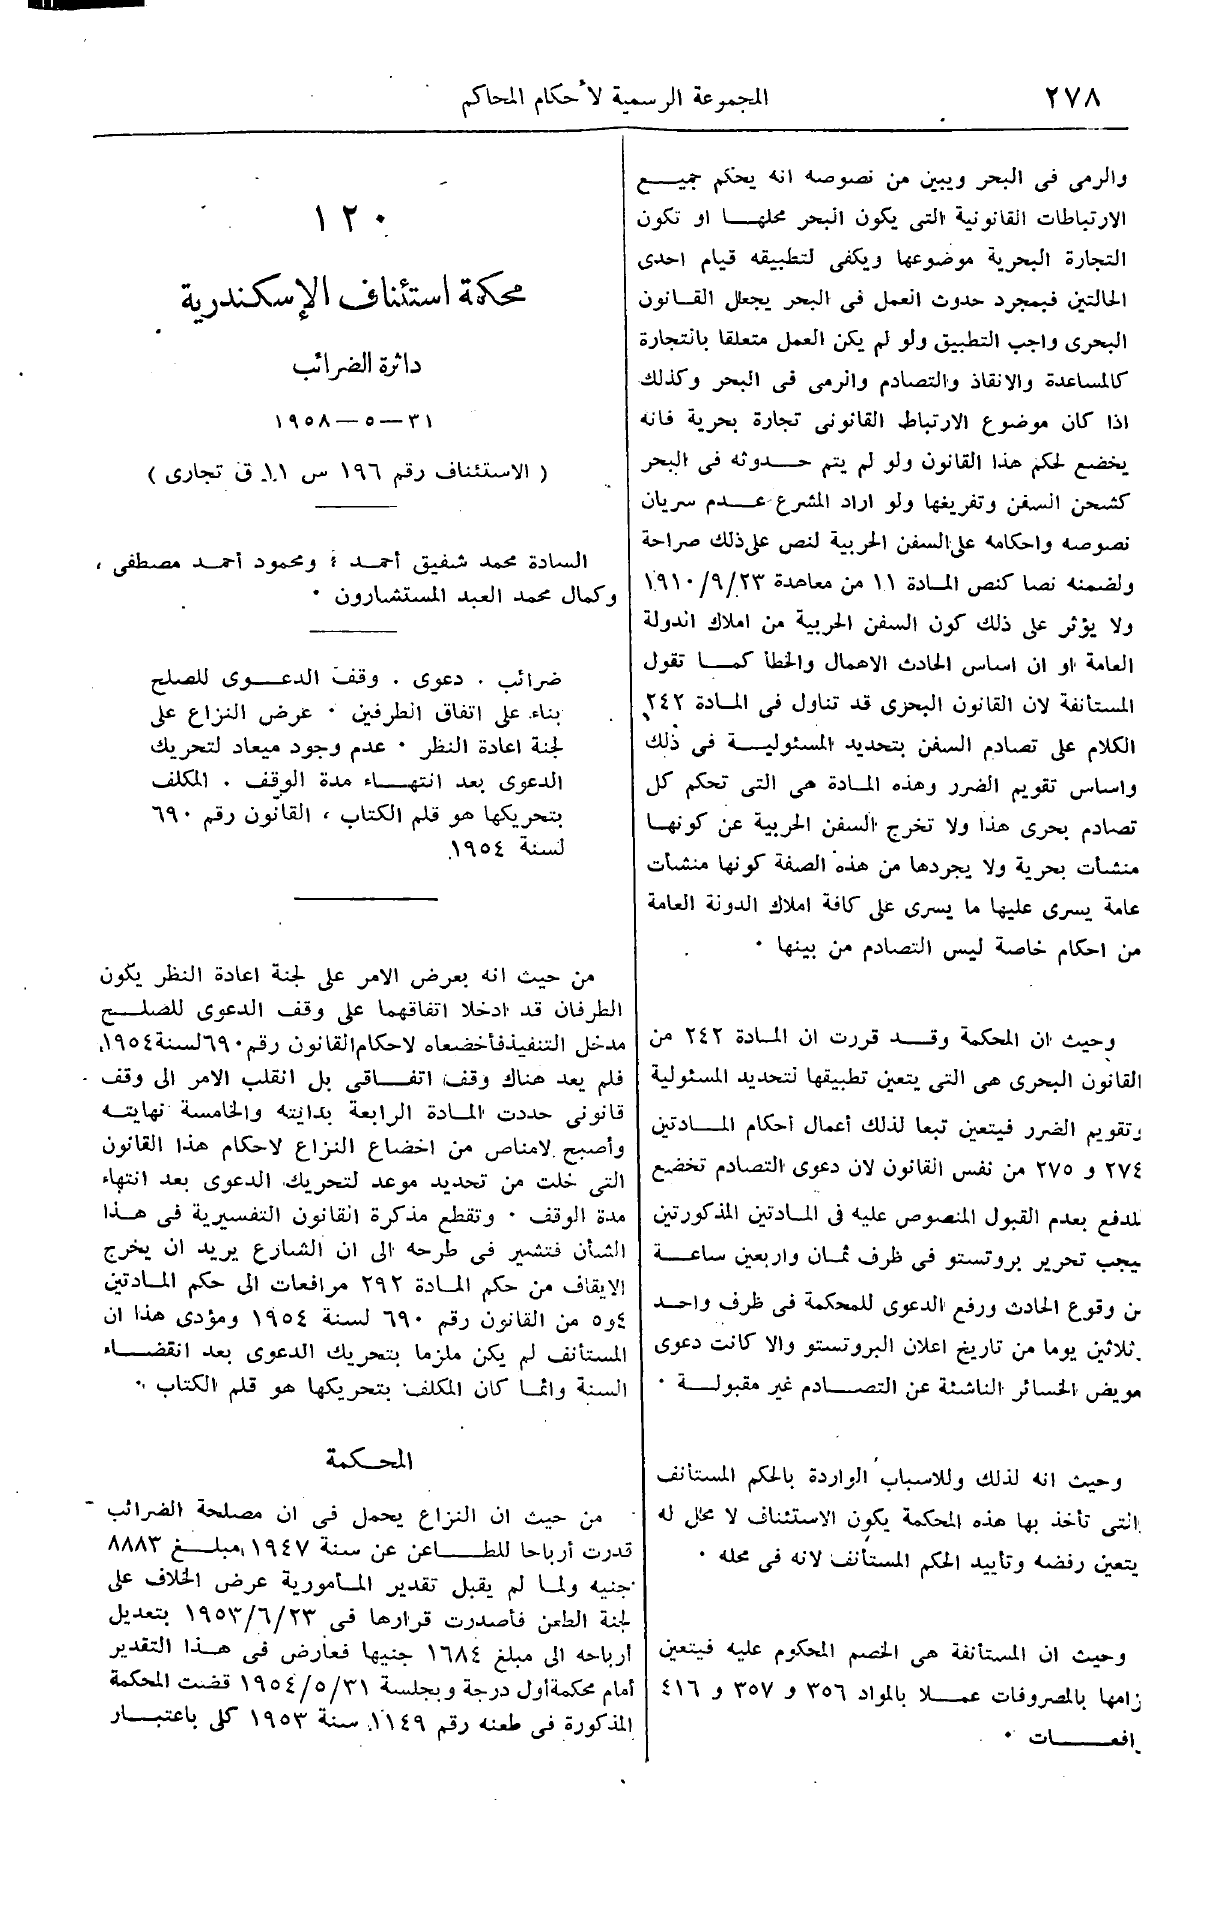 ٢٧٨
المجموعة الرسمية لأحكام المحاكم
والرمى فى البحر ويبين من نصوصه انه يحكم جميع
الارتباطات القانونية التى يكون البحر محلها او تكون
التجارة البحرية موضوعها ويكفى لتطبيقه قيام احدى
الحالتين فبمجرد حدوث العمل فى البحر يجعل القانون
البحرى واجب التطبيق ولو لم يكن العمل متعلقا بالتجارة
كالمساعدة والانقاذ والتصادم والرمى فى البحر وكذلك
اذا كان موضوع الارتباط القانونى تجارة بحرية فانه
يخضع لحكم هذا القانون ولو لم يتم حدوثه فى البحر
كشحن السفن وتفريغها ولو اراد المشرع عدم سريان
نصوصه واحكامه على السفن الحربية لنص على ذلك صراحة
ولضمنه نصا كنص المادة ١١ من معاهدة ١٩١٠/٩/٢٣
ولا يؤثر على ذلك كون السفن الحربية من املاك الدولة
العامة او ان اساس الحادث الاهمال والخطأ كما تقول
المستأنفة لان القانون البحرى قد تناول فى المادة ٢٤٢
الكلام على تصادم السفن بتحديد المسئولية فى ذلك
واساس تقويم الضرر وهذه المادة هى التى تحكم كل
تصادم بحرى هذا ولا تخرج السفن الحربية عن كونها
منشأت بحرية ولا يجردها من هذه الصفة كونها منشأت
عامة يسرى عليها ما يسرى على كافة املاك الدولة العامة
من احكام خاصة ليس التصادم من بينها .
وحيث ان المحكمة وقد قررت ان المادة ٢٤٢ من
القانون البحرى هى التى يتعين تطبيقها لتحديد المسئولية
وتقويم الضرر فيتعين تبعا لذلك أعمال أحكام المادتين
٢٧٤ و ٢٧٥ من نفس القانون لان دعوى التصادم تخضع
للدفع بعدم القبول المنصوص عليه فى المادتين المذكورتين
يجب تحرير بروتستو فى ظرف ثمان واربعين ساعة
ن وقوع الحادث ورفع الدعوى للمحكمة فى ظرف واحد
ثلاثين يوما من تاريخ اعلان البروتستو والا كانت دعوى
مويض الخسائر الناشئة عن التصادم غير مقبولة .
وحيث انه لذلك وللاسباب الواردة بالحكم المستأنف
التى تأخذ بها هذه المحكمة يكون الاستئناف لا محل له
يتعين رفضه وتأييد الحكم المستأنف لانه فى محله .
وحيث ان المستأنفة هى الخصم المحكوم عليه فيتعين
زامها بالمصروفات عملا بالمواد ٣٥٦ و ٣٥٧ و ٤١٦
افعات .
١٢٠
محكمة استئناف الإسكندرية
دائرة الضرائب
٣١—٥—١٩٥٨
( الاستئناف رقم ١٩٦ س ١١ ق تجارى )
السادة محمد شفيق أحمد ؛ ومحمود أحمد مصطفى ،
وكمال محمد العبد المستشارون .
ضرائب . دعوى . وقف الدعوى للصلح
بناء على اتفاق الطرفين . عرض النزاع على
لجنة اعادة النظر . عدم وجود ميعاد لتحريك
الدعوى بعد انتهاء مدة الوقف . المكلف
بتحريكها هو قلم الكتاب ، القانون رقم ٦٩٠
لسنة ١٩٥٤.
من حيث انه بعرض الامر على لجنة اعادة النظر يكون
الطرفان قد ادخلا اتفاقهما على وقف الدعوى للصلح
مدخل التنفيذ فأخضعاه لاحكام القانون رقم ٦٩٠ لسنة ١٩٥٤
فلم يعد هناك وقف اتفاقى بل انقلب الامر الى وقف
قانونى حددت المادة الرابعة بدايته والخامسة نهايته
وأصبح لامناص من اخضاع النزاع لاحكام هذا القانون
التى خلت من تحديد موعد لتحريك الدعوى بعد انتهاء
مدة الوقف . وتقطع مذكرة القانون التفسيرية فى هذا
الشأن فتشير فى طرحه الى ان الشارع يريد ان يخرج
الايقاف من حكم المادة ٢٩٢ مرافعات الى حكم المادتين
٤و٥ من القانون رقم ٦٩٠ لسنة ١٩٥٤ ومؤدى هذا ان
المستأنف لم يكن ملزما بتحريك الدعوى بعد انقضاء
السنة وانما كان المكلف بتحريكها هو قلم الكتاب .
المحكمة
من حيث ان النزاع يحمل فى ان مصلحة الضرائب
قدرت أرباحا للطاعن عن سنة ١٩٤٧ مبلغ ٨٨٨٣
جنيه ولما لم يقبل تقدير المأمورية عرض الخلاف على
لجنة الطعن فأصدرت قرارها فى ١٩٥٣/٦/٢٣ بتعديل
أرباحه الى مبلغ ١٦٨٤ جنيها فعارض فى هذا التقدير
أمام محكمة أول درجة وبجلسة ١٩٥٤/٥/٣١ قضت المحكمة
المذكورة فى طعنه رقم ١١٤٩ سنة ١٩٥٣ كلى باعتبار